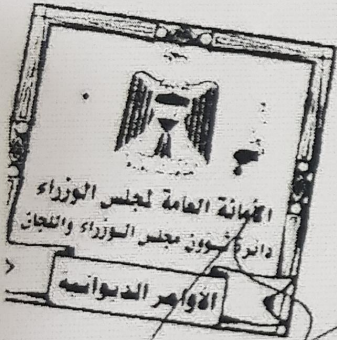 الامانة العامة لمجلس الوزراء
دائرة شؤون مجلس الوزراء واللجان
الاوامر الديوانية